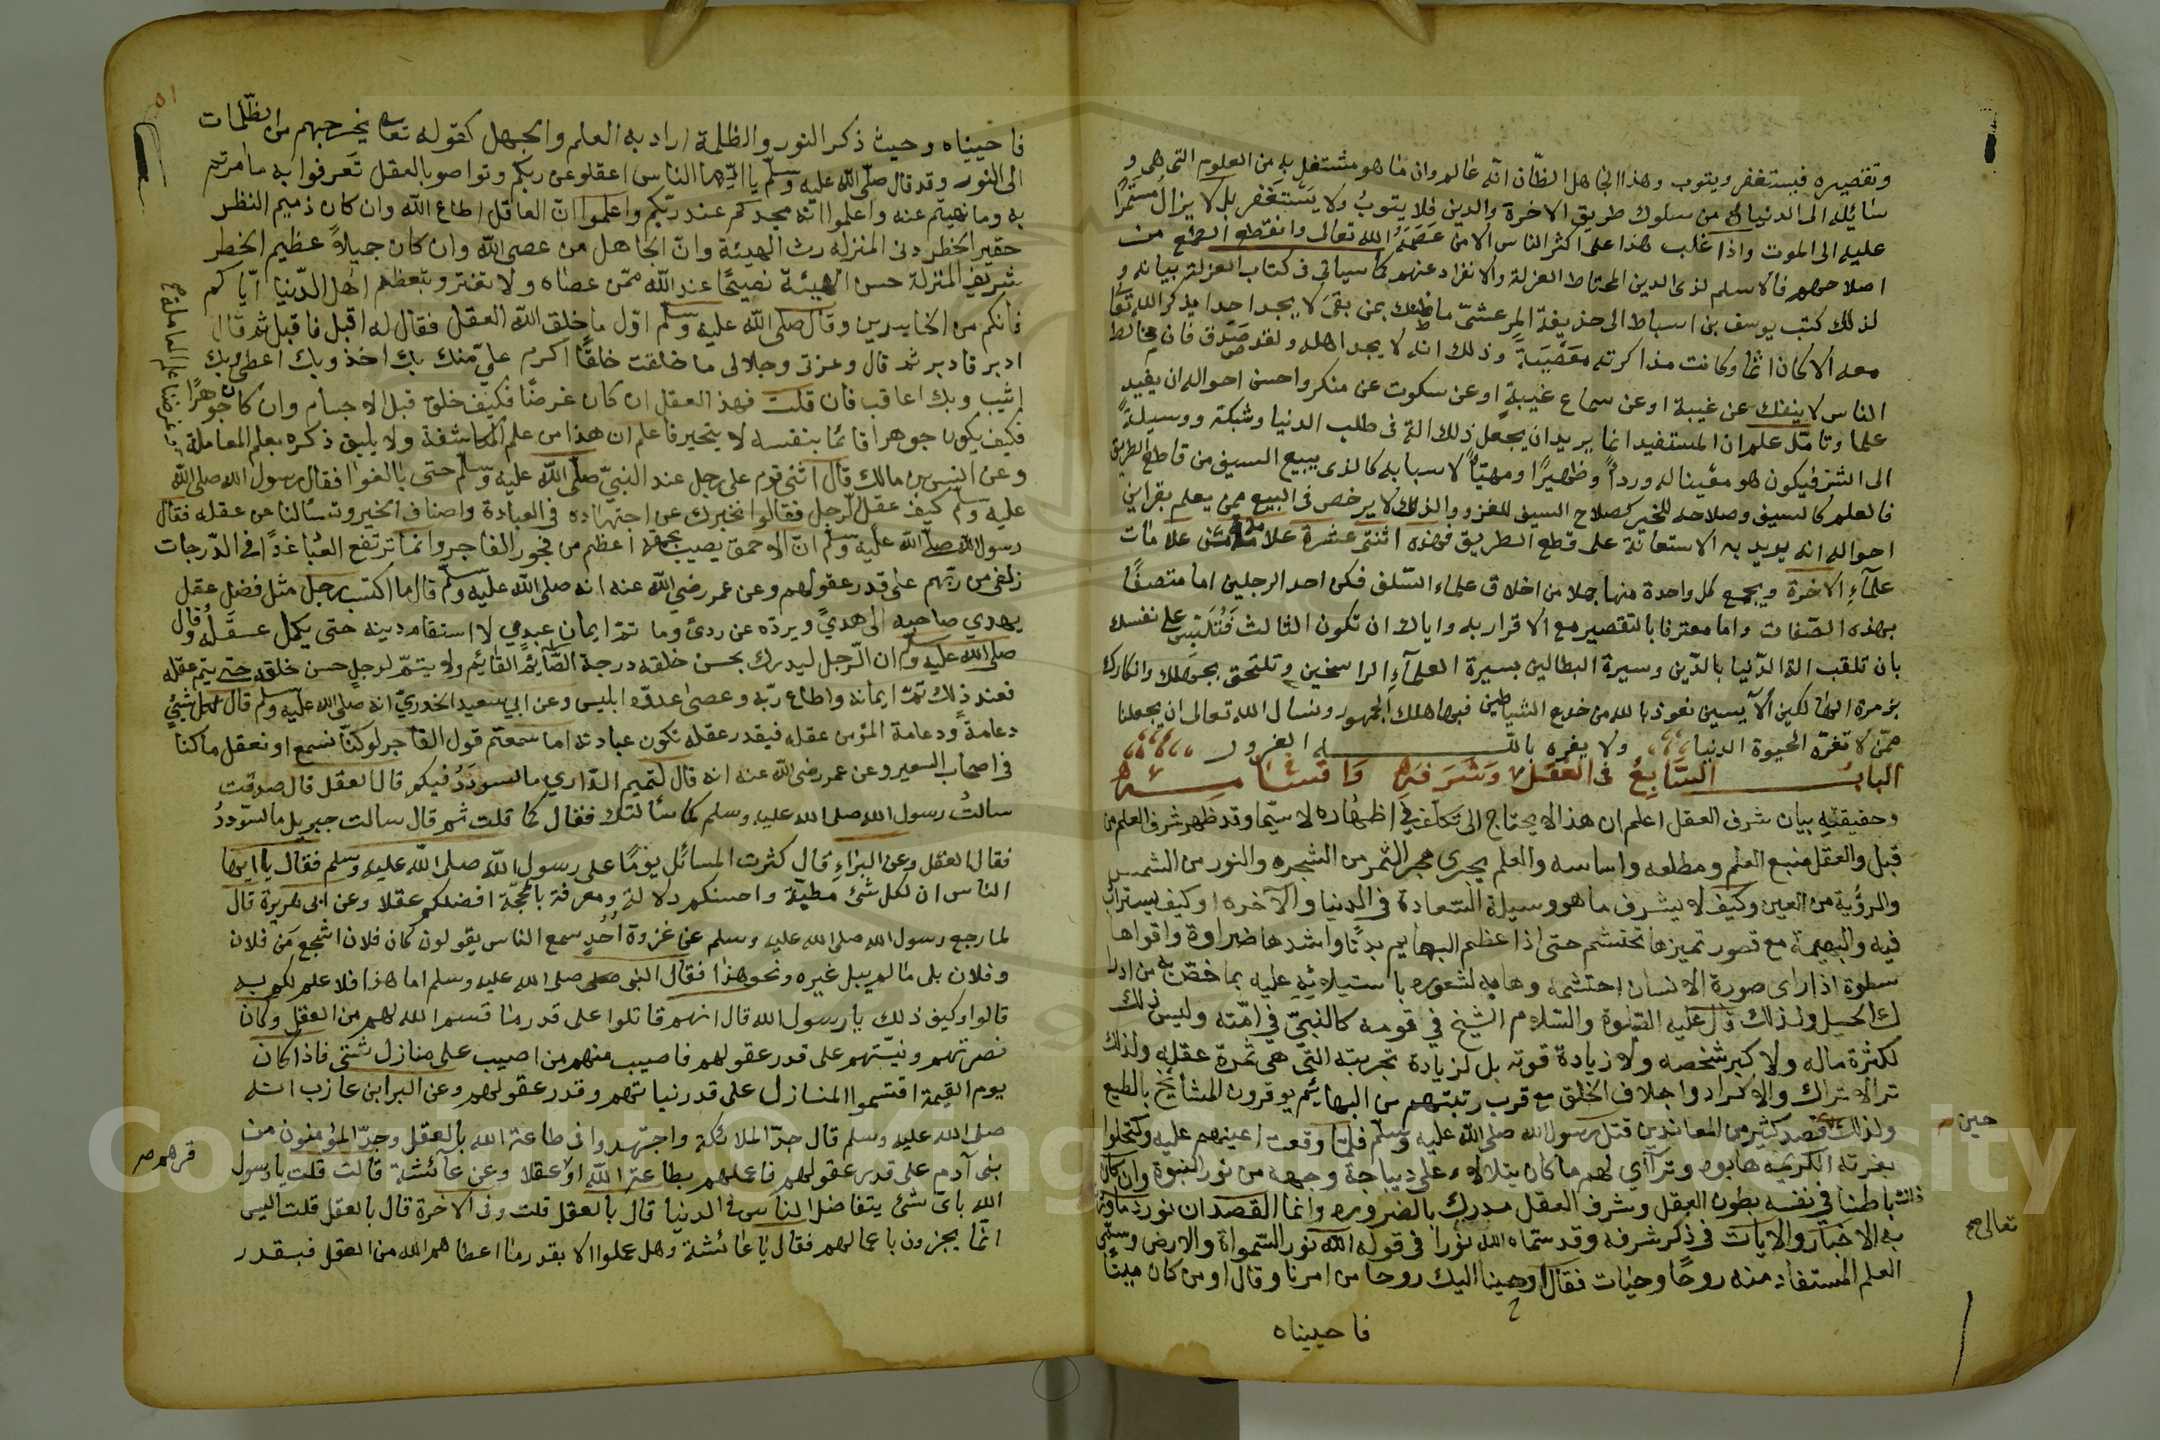 وتقصيره فيستغفر ويتوب وهذا الجاهل الظان انه عالم وان ما هو مشتغل به من العلوم التي هي و
سائله الى الدنيا من سلوك طريق الاخرة والدين فلا يتوب ولا يستغفر بل لا يزال مستمرا
عليه الى الموت واذا غلب هذا على اكثر الناس الا من عصمه الله تعالى وانقطع الطمع من
اصلاحهم فالاسلم لذى الدين المحتاط العزلة والانفراد عنهم كما سياتى فى كتاب العزلة بيانه و
لذلك كتب يوسف بن اسباط الى حذيفة المرعشى ما ظنك بمن بقى لا يجد احدا يذكر الله تعا
معه الا كان اثما وكانت مذاكرته معصية وذلك انه لا يجد اهله ولقد صدق فان مخالط
الناس لا ينفك عن غيبة او عن سماع غيبة او عن سكوت عن منكر واحسن احواله ان يفيد
علما وتامل علم ان المستفيد انما يريد ان يجعل ذلك الة فى طلب الدنيا وشبكة ووسيلة
الى الشر فيكون هو معينا له وردا وظهيرا ومهيئا لاسبابه كالذى يبيع السيف من قاطع الطريق
فالعلم كالسيف وصلاحه للخير كصلاح السيف للغزو ولذلك لا يرخص فى البيع ممن يعلم بقراين
احواله انه يريد به الاستعانة على قطع الطريق فهذه اثنتى عشرة علامة من علامات
علماء الاخرة ويجمع كل واحدة منها جملا من اخلاق علماء السلف فكن احد الرجلين اما متصفا
بهذه الصفات واما معترفا بالتقصير مع الاقرار به واياك ان تكون الثالث فتلبس على نفسك
بان تلقب الة الدنيا بالدين وسيرة البطالين بسيرة العلماء الراسخين وتلتحق بجهلك وانكارك
بزمرة الهالكين الآيسين نعوذ بالله من خدع الشياطين فبها هلك الجمهور ونسال الله تعالى ان يجعلنا
ممن لا تغره الحيوة الدنيا ولا يغره بالله الغرور
الباب السابع فى العقل وشرفه واقسامه
وحقيقته بيان شرف العقل اعلم ان هذا لا يحتاج الى تكلف فى اظهاره لا سيما وقد ظهر شرف العلم من
قبل والعقل منبع العلم ومطلعه واساسه والعلم يجرى مجرى الثمر من الشجره والنور من الشمس
والرؤية من العين وكيف لا يشرف ما هو وسيلة السعادة فى الدنيا والآخره او كيف يستراب
فيه والبهيمة مع قصور تميزها تحتشم حتى اذا عظم البهايم بدنا واشدها ضراوة واقواها
سطوة اذا راى صورة الانسان احتشمه وهابه لشعوره باستيلائه عليه بما خص به من ادرا
ك الحيل ولذلك قال عليه الصلوة والسلام الشيخ في قومه كالنبي في امته وليس ذلك
لكثرة ماله ولا كبر شخصه ولا زيادة قوته بل لزيادة تجربته التى هى ثمرة عقله ولذلك
تر الاتراك والاكراد واجلاف الخلق مع قرب رتبتهم من البهائم يوقرون المشائخ بالطبع
ولذلك قصد كثير من المعاندين قتل رسول الله صلى الله عليه وسلم فلما وقعت اعينهم عليه وكتحلوا
بغرته الكريمه هابوه وترآاي لهم ما كان يتلالاء على ديباجة وجهه من نور النبوة وان كان
ذلك باطنا في نفسه بطون العقل وشرف العقل مدرك بالضروره وانما القصد ان نورد ما ورد
به الاخبار والايات فى ذكر شرفه وقد سماه الله نورا فى قوله الله نور السمواة والارض وسمى
العلم المستفاد منه روحا وحيات فقال اوحينا اليك روحا من امرنا وقال اومن كان ميتا
فاحييناه
حين
تعالى صح
٥١
فاحييناه وحيث ذكر النور والظلمة اراد به العلم والجهل كقوله تعا يخرجهم من الظلمات
الى النور وقد قال صلى الله عليه وسلم يا ايها الناس اعقلو عن ربكم وتواصو بالعقل تعرفوا به ما امرتم
به وما نهيتم عنه واعلموا انه مجدكم عند ربكم واعلموا ان العاقل اطاع الله وان كان ذميم النظر
حقير الخطر دنى المنزله رث الهيئة وان الجاهل من عصى الله وان كان جيلا عظيم الخطر
شريف المنزلة حسن الهيئة فصيحا عند الله ممن عصاه ولا تغترو بتعظم اهل الدنيا اياكم
فانكم من الخايسرين وقال صلى الله عليه وسلم اول ما خلق الله العقل فقال له اقبل فاقبل ثم قال
ادبر فادبر ثم قال وعزتى وجلالى ما خلقت خلقا اكرم علي منك بك اخذ وبك اعطى وبك
اثيب وبك اعاقب فان قلت فهذ العقل ان كان عرضا فكيف خلق قبل الاجسام وان كان جوهرا
فكيف يكون جوهرا قائما بنفسه لا يتحيز فاعلم ان هذا من علم المكاشفة ولا يليق ذكره بعلم المعاملة
وغرضنا علم المعاملة صح
وعن انيس بن مالك قال اثنى قوم على رجل عند النبي صلى الله عليه وسلم حتى بالغوا فقال رسول الله صلى الله
عليه وسلم كيف عقل الرجل فقالوا نخبرك عن اجتهاده فى العبادة واصناف الخير وتسألنا عن عقله فقال
رسول الله صلى الله عليه وسلم ان الاحمق يصيب بجهله اعظم من فجور الفاجر وانما ترتفع العباد غدا فى الدرجات
زلفى من ربهم على قدر عقولهم وعن عمر رضي الله عنه انه صلى الله عليه وسلم قال ما اكتسب رجل مثل فضل عقل
يهدي صاحبه الى هدى ويرده عن ردى وما تم ايمان عبدي لا استقام دينه حتى يكمل عقله وقال
صلى الله عليه وسلم ان الرجل ليدرك بحسن خلقه درجة الصآئم القايم ولا يتم لرجل حسن خلقه حتى يتم عقله
فعند ذلك تم ايمانه واطاع ربه وعصى عدوه ابليس وعن ابي سعيد الخدري انه صلى الله عليه وسلم قال لكل شئ
دعامة ودعامة المؤمن عقله فيقدر عقله تكون عبادته اما سمعتم قول الفاجر لو كنا نسمع او نعقل ما كنا
فى اصحاب السعير وعن عمر رضى الله عنه انه قال لتميم الداري ما لسودد فيكم قال العقل قال صدقت
سالت رسول الله صلى الله عليه وسلم كما سألتك فقال كما قلت ثم قال سالت جبريل ما السودد
فقال العقل وعن البراء قال كثرت المسائل يوما على رسول الله صلى الله عليه وسلم فقال يا ايها
الناس ان لكل شئ مطية واحسنكم دلالة ومعرفة بالحجة افضلكم عقلا وعن ابى هريرة قال
لما رجع رسول الله صلى الله عليه وسلم عن غزوة احد سمع الناس يقولون كان فلان اشجع من فلان
وفلان بلى ما لم يبل غيره ونحو هذا فقال النبى صلى الله عليه وسلم اما هذا فلا علم لكم به
قالوا وكيف ذلك يا رسول الله قال انهم قاتلوا على قدر ما قسم الله لهم من العقل وكان
نصرتهم ونيتهم على قدر عقولهم فاصيب منهم من اصيب على منازل شتى فاذا كان
يوم القيمة اقتسموا المنازل على قدر نياتهم وقدر عقولهم وعن البرا ابن عازب انه
صلى الله عليه وسلم قال جد الملائكة واجتهدوا فى طاعة الله بالعقل وجد المؤمنون من
بنى آدم على قدر عقولهم فاعملهم بطاعة الله اوفرهم عقلا وعن عآئشة قالت قلت يا رسول
الله باى شئ يتفاضل الناس فى الدنيا قال بالعقل قلت وفى الاخرة قال بالعقل قلت اليس
انما يجزون باعمالهم فقال يا عائشة وهل عملوا الا بقدر ما اعطاهم الله من العقل فبقدر
Copyright © King Saud University